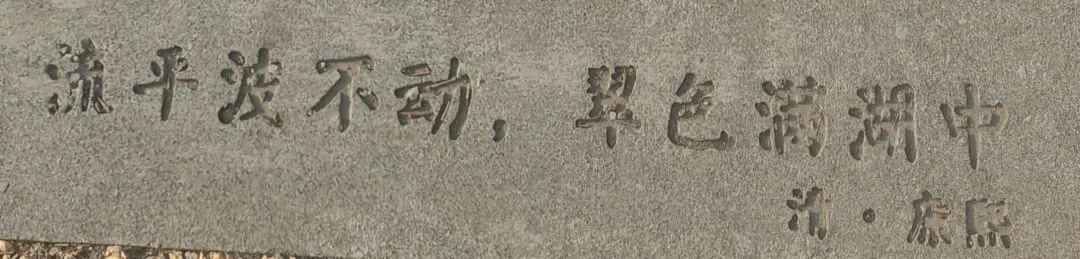 流平波不动，翠色满湖中
清·康熙